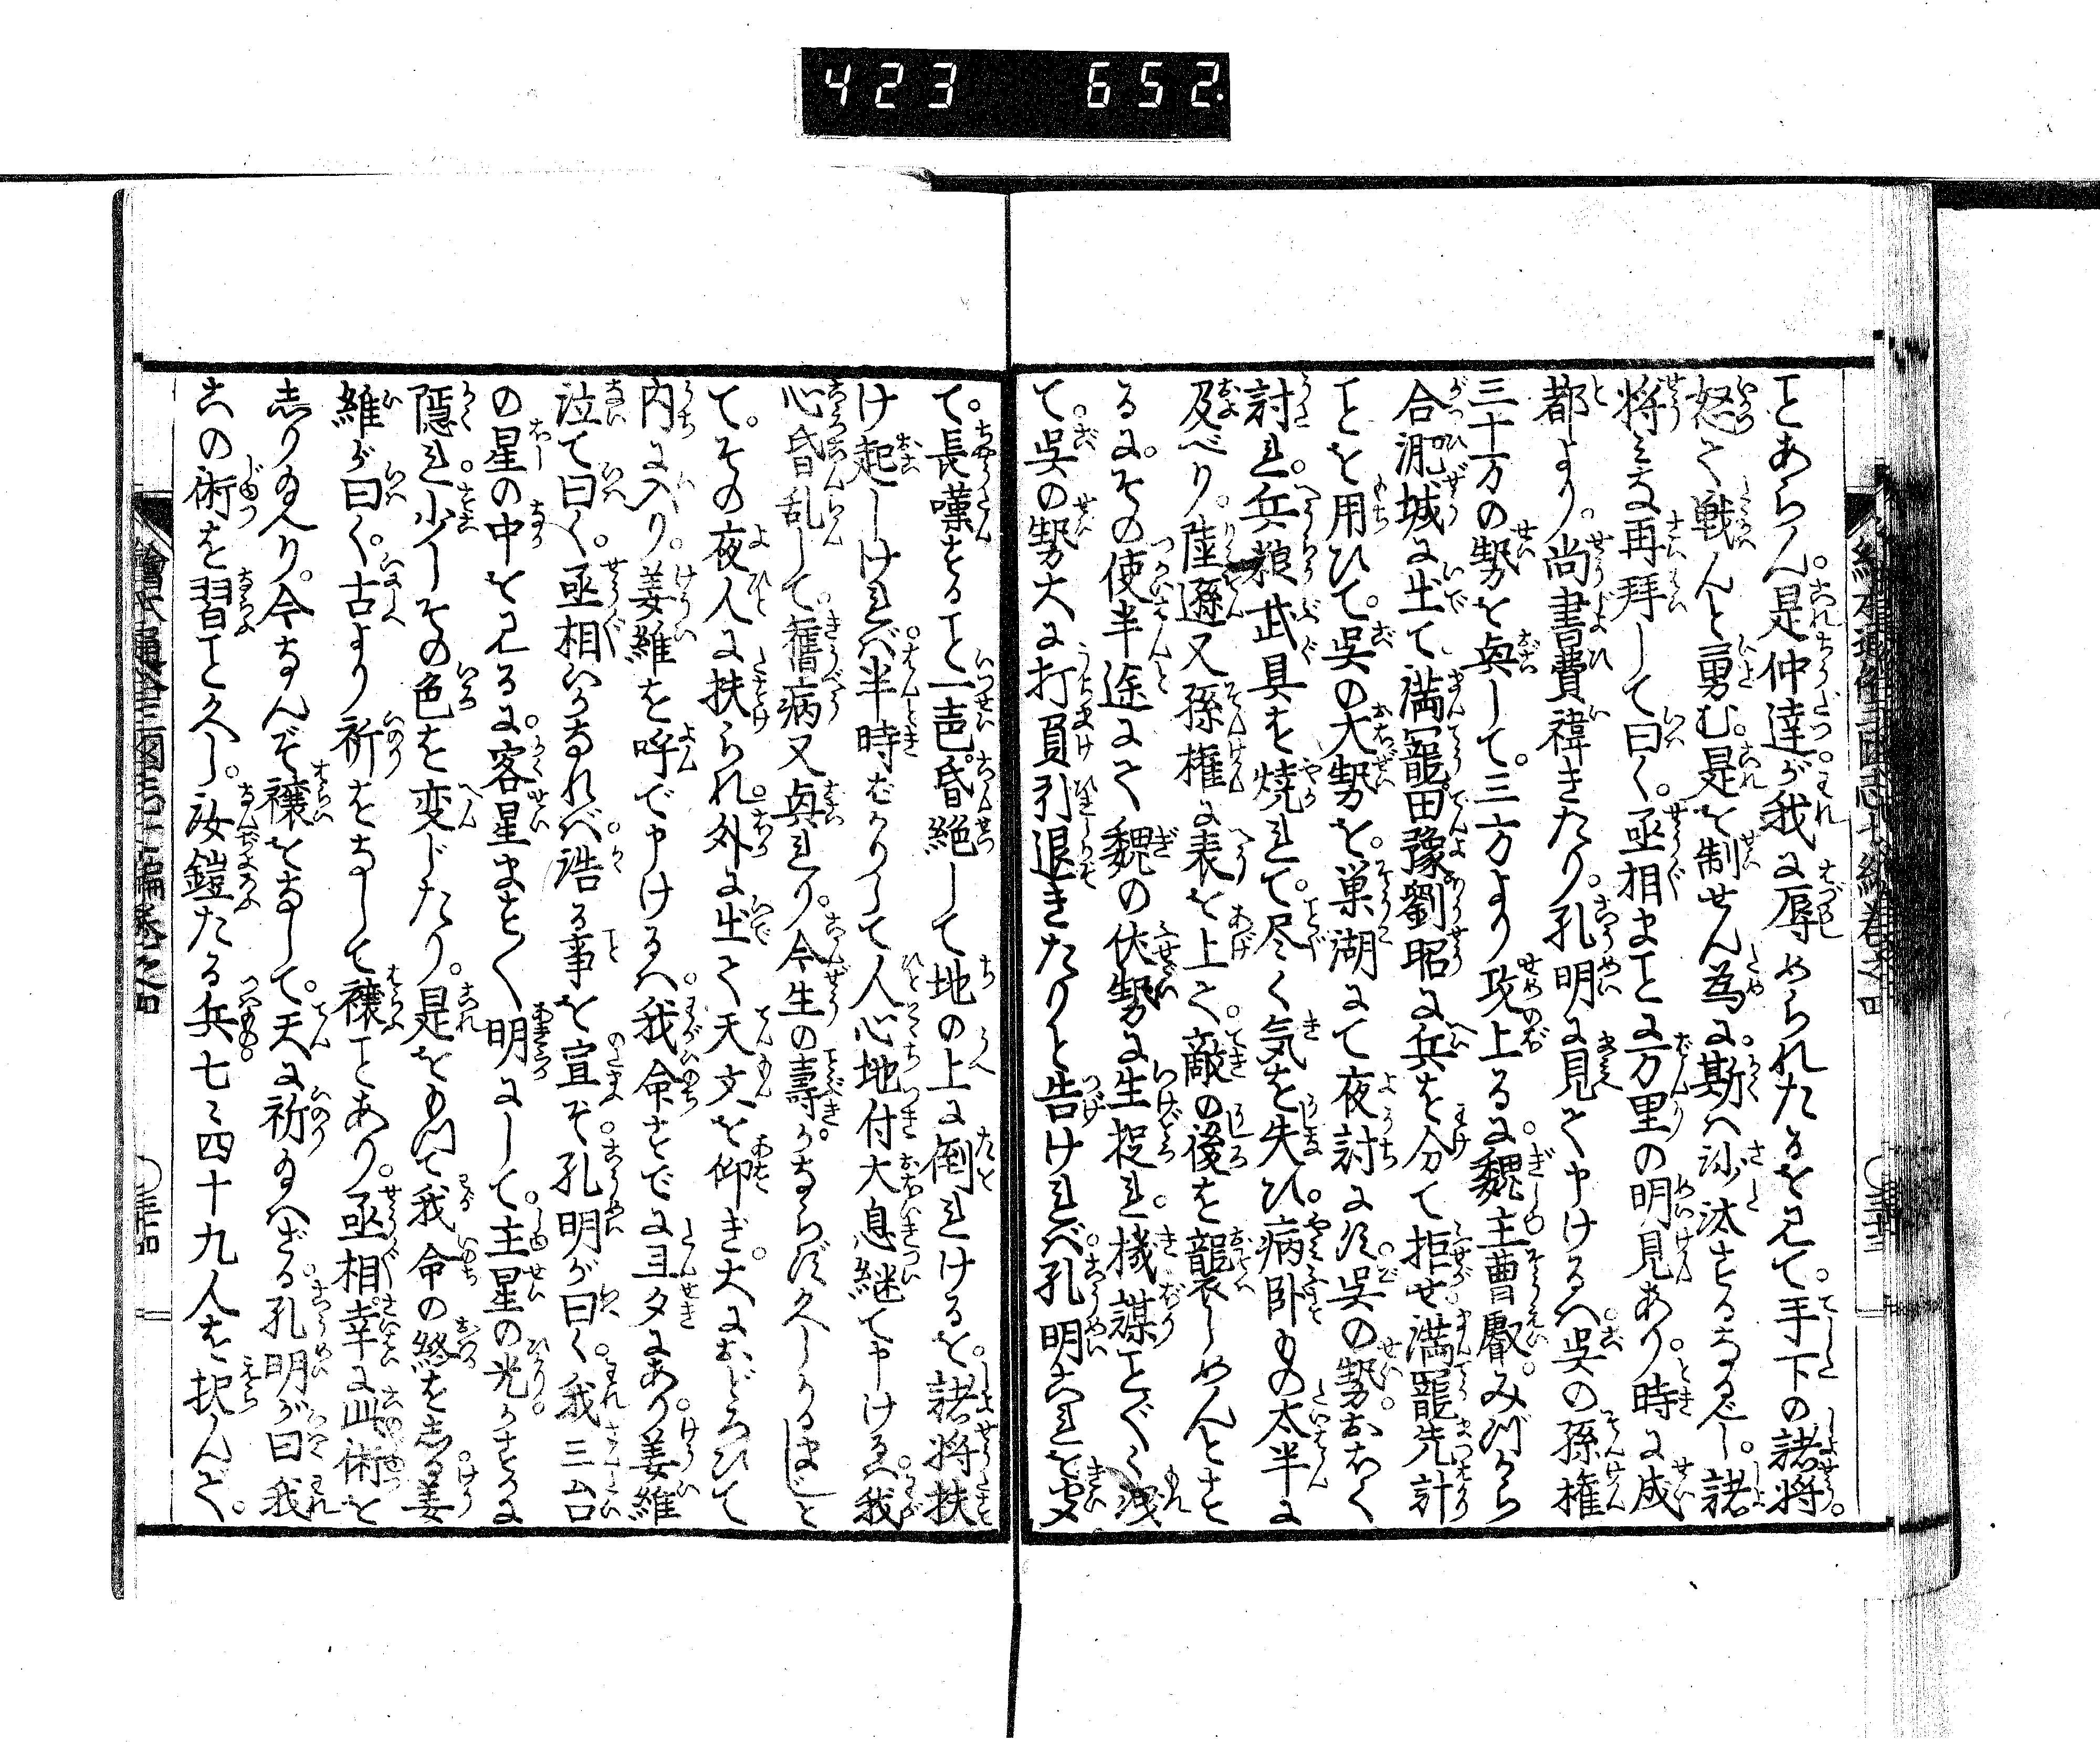 423 652
ことあらん。是仲達が我に辱められたるを見て。手下の諸将。
怒て戦んと勇む。是を制せん為に。斯ハ沙汰するなるべし。諸
将みな再拝して曰く。丞相まことに万里の明見あり。時に成
都より。尚書費禕きたり。孔明に見て申けるハ。呉の孫権
三十万の勢を興して。三方より攻上るに。魏主曹叡。みづから
合淝城に出て。満寵田豫劉昭に兵を分て拒せ。満寵先計
ことを用ひて。呉の大勢を。巣湖にて夜討にす。呉の勢。おほく
討れ。兵粮武具を焼れて。尽く気を失ひ。病臥もの太半に
及べり。陸遜又孫権に表を上て。敵の後を襲しめんとす
るに。その使半途にて魏の伏勢に生捉れ。機謀ことごとく洩
て。呉の勢大に打負引退きたりと告けれべ。孔明これを聞
て。長嘆すること一声。昏絶して地の上に倒れけるを。諸将扶
け起しけれべ。半時ばかりして人心地付大息継て申けるハ。我
心昏乱して。旧病又興れり。今生の寿。かならず久しかるまじと
て。その夜人に扶られ。外に出て天文を仰ぎ。大におどろひて
内に入り。姜維を呼で申けるハ。我命すでに旦夕にあり。姜維
泣て曰く。丞相いかなれべ。斯る事を宣ぞ。孔明が曰く。我三台
の星の中を見るに。客星ますく明にして。主星の光かすかに
隠れ。少しその色を変じたり。是をもつて我命の終をしる。姜
維が曰く。古より祈をなして禳ことあり。丞相幸に此術を
しり給へり。今なんぞ禳をなして。天に祈給ハざる。孔明が曰我
この術を習こと久し。汝鎧たる兵七々四十九人を択んで。